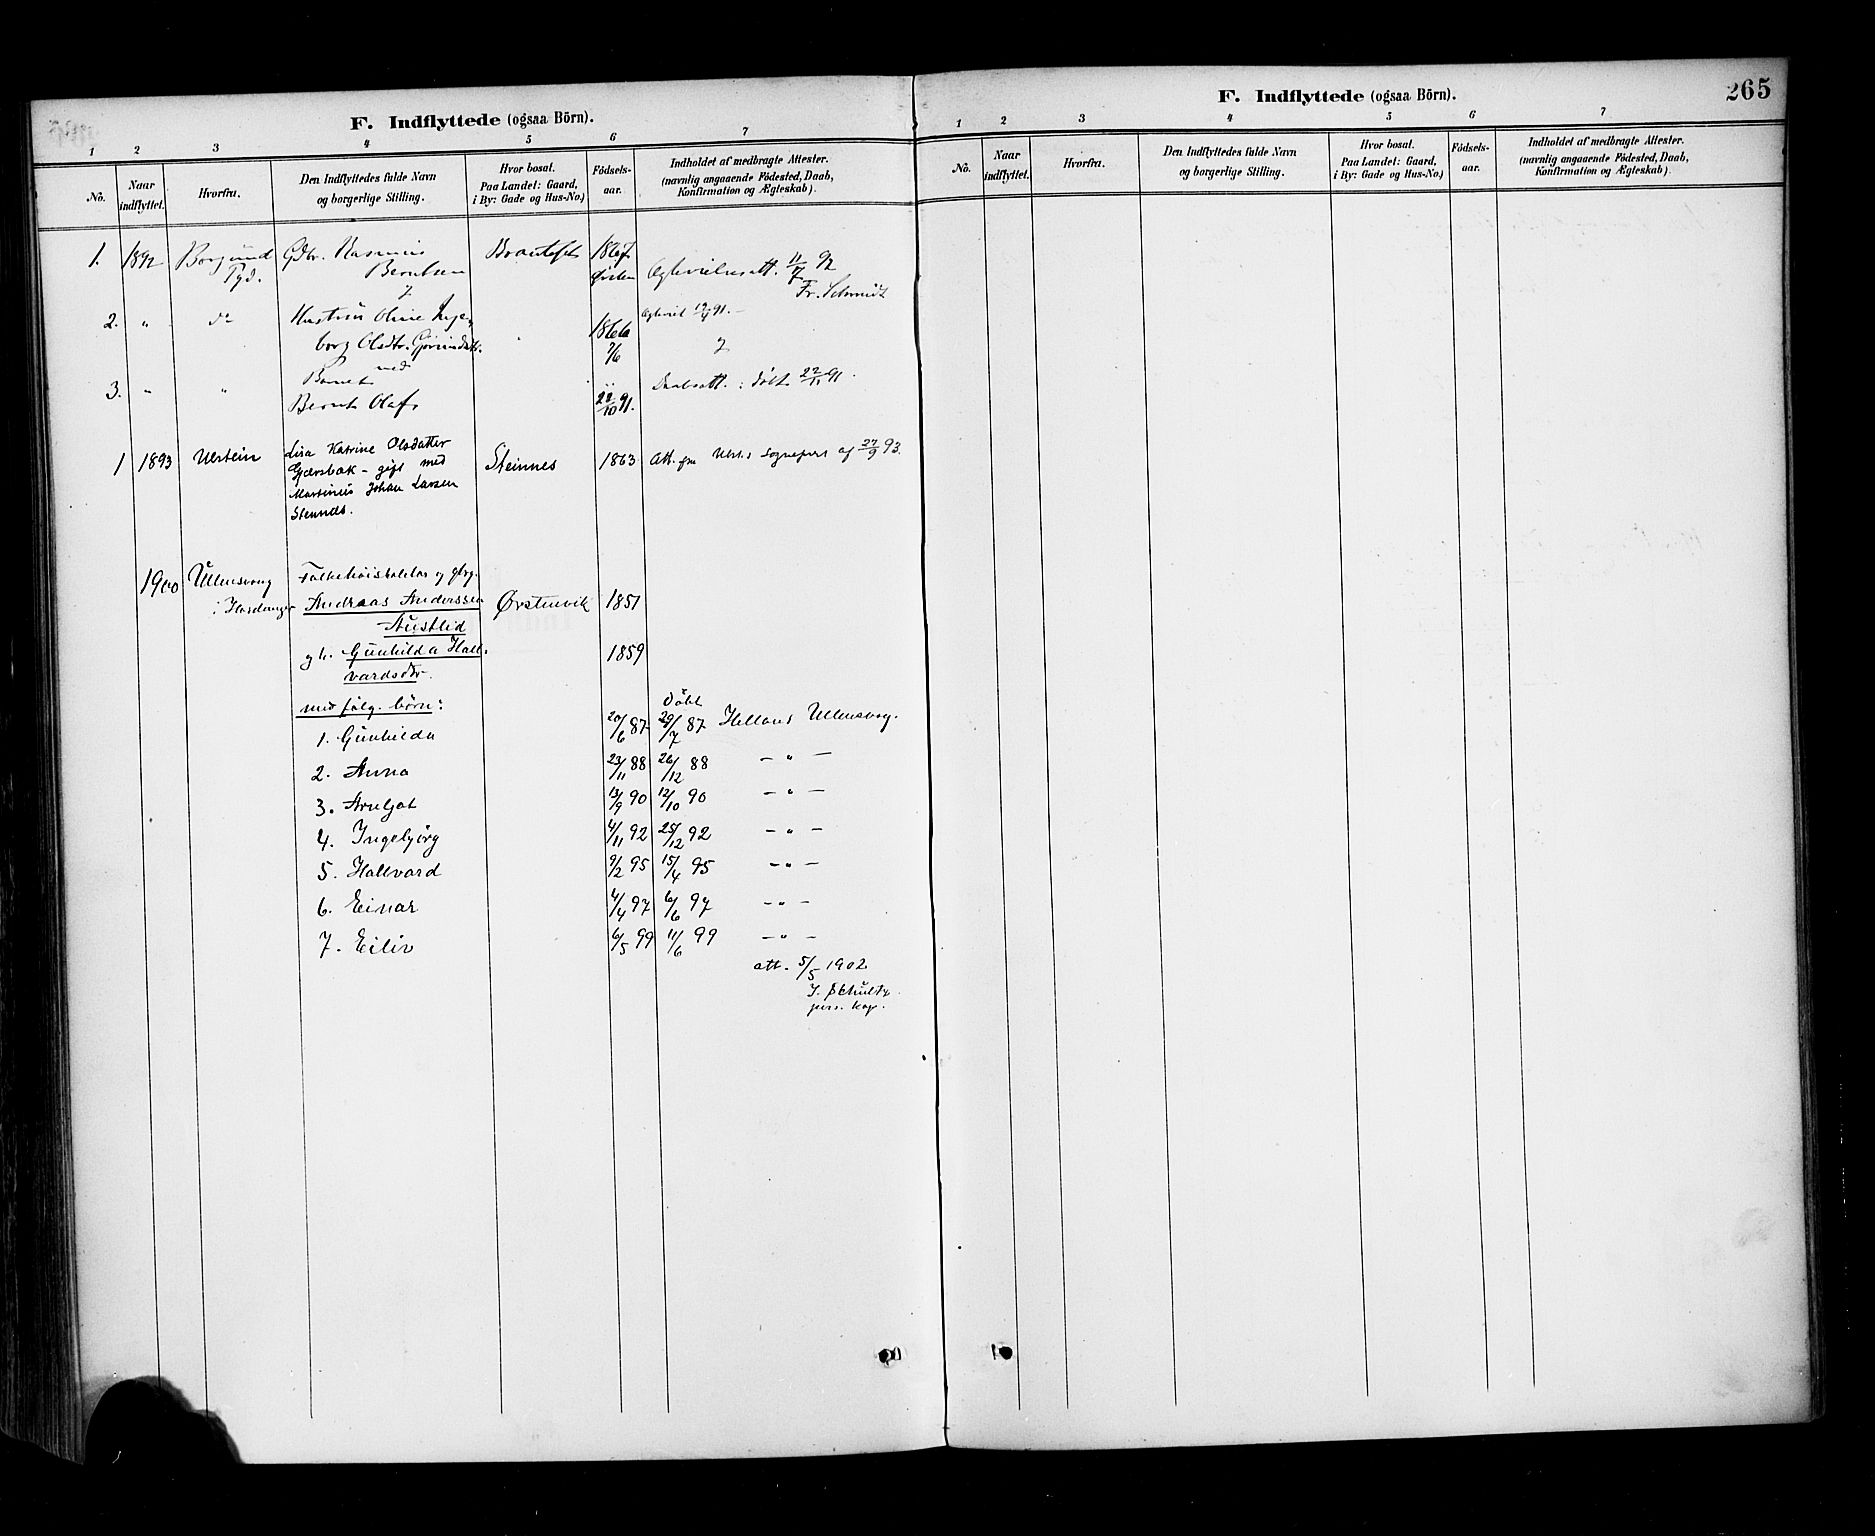 F. Indflyttede (ogsaa Börn).
1 2 3 4 5 6 7
No.
Naar indflyttet.
Hvorfra.
Den Indflyttedes fulde Navn
og borgerlige Stilling.
Hvor bosat.
Paa Landet: Gaard,
i By: Gade og Hus-No.)
Fódsels-
aar.
Indholdet af medbragte Attester.
(navnlig angaaende Fódested, Daab,
Konfirmation og Ægteskab).
1. 1892 Borgund Gdbr. Rasmus 1867
Berntsen Ørsten 11/7 92
Fr. Schmidt
2. " do Hustru Oline Inge- 91. —
borg Olsdtr. 1866
7/6
3. " " Barnet med Daabsatt. : døbt 22/11 91.
Bernt Olaf 22/10 91.
1 1893 Ulstein Lisa Katrine Olsdatter
Gjærsbak - gift med Steinnes 1863 Att. fra Ulst. Sognepræst af 27/9 93.
Martinus Johan Larsen
Steinnes.
1900 Ullensvang Folkehøiskolebest og gbrg.
i Hardanger Andreas Anderssen Ørstenvik 1851
Austlid
g h. Gunhilda Hall- 1859
vardsdtr.
med følg. børn: Døbt
1. Gunhilda 20/6 87 29/7 87 Helland Ullensvang.
2. Anna 23/11 88 26/12 88 — " —
3. Arnljot 13/9 90 12/10 90 — " —
4. Ingebjørg 4/11 92 25/12 92 — " —
5. Hallvard 9/2 95 15/4 95 — " —
6. Einar 4/4 97 6/6 97 — " —
7. Eiliv 6/5 99 11/6 99 — " —
att. 5/5 1902
J. Schultz
pers. kap.
265
F. Indflyttede (ogsaa Börn).
1 2 3 4 5 6 7
No.
Naar
indflyttet.
Hvorfra.
Den Indflyttedes fulde Navn
og borgerlige Stilling.
Hvor bosat.
Paa Landet: Gaard,
i By: Gade og Hus-No.)
Fódsels-
aar.
Indholdet af medbragte Attester.
(navnlig angaaende Fódested, Daab,
Konfirmation og Ægteskab).